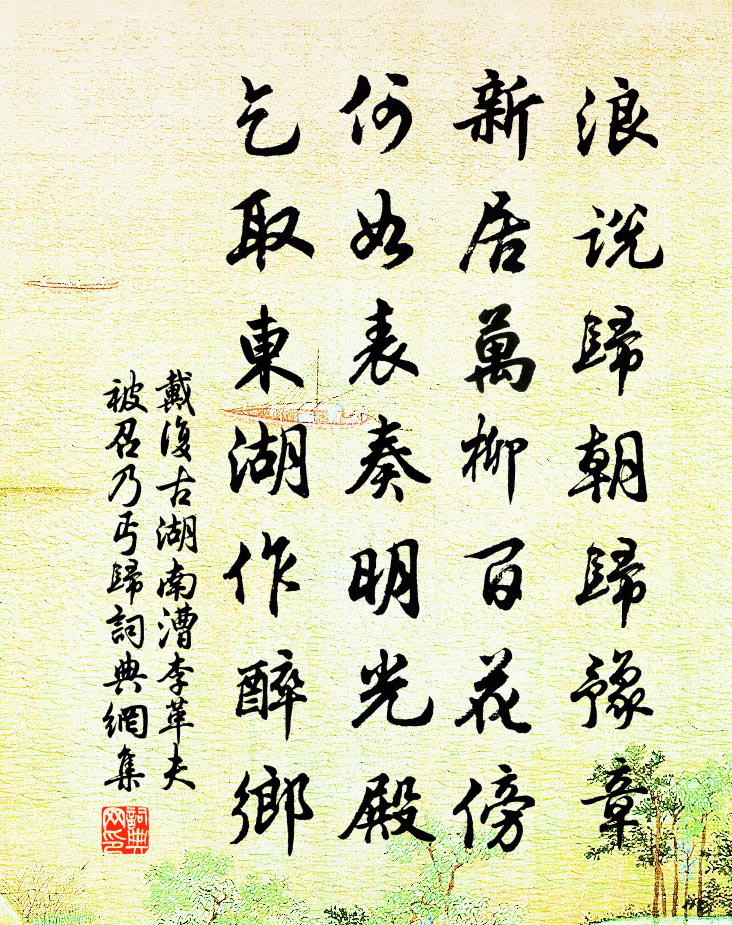 浪說歸朝歸豫章
新居萬柳百花傍
何如表奏明光殿
乞取東湖作醉鄉
戴復古湖南漕李革夫
被召乃丐歸詞典網集
詞典
网印